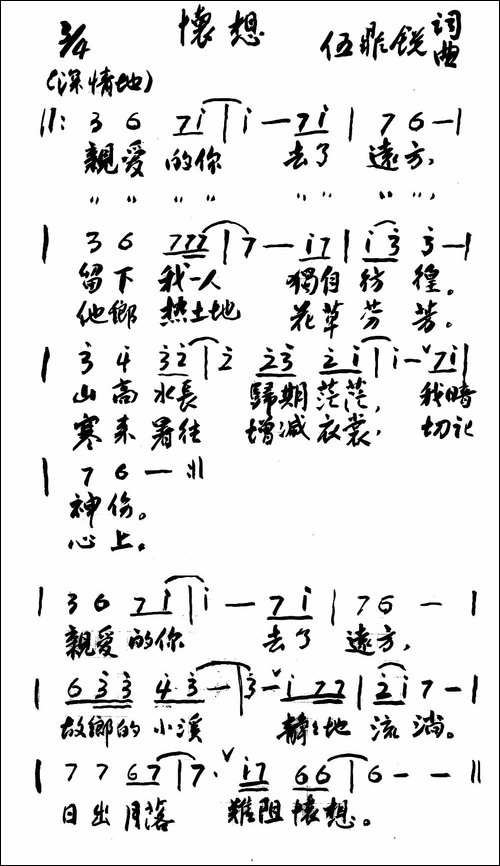 懷想
3/4 伍鼎銳 詞曲
(深情地)
||: 3 6 7i | i — 7i | 7 6 — |
親愛的你 去了 遠方,
〃 〃 〃 〃 〃 〃 〃 〃,
| 3 6 777 | 7 — i7 | i 3 3 — |
留下 我一人 獨自彷徨。
他鄉 热土地 花草芬芳。
| 3 4 32 | 2 23 2i | i — ˇ 7i |
山高水長 歸期茫茫, 我暗
寒来暑往 增减衣裳, 切记
| 7 6 — :||
神伤。
心上。
| 3 6 7i | i — 7i | 7 6 — |
親愛的你 去了 遠方,
| 6 33 43 — | 3 — ˇ i 77 | 2i 7 — |
故鄉的小溪 靜々地 流淌。
| 7 7 67 | 7. ˇ i7 66 | 6 — — ||
日出月落 難阻懷想。